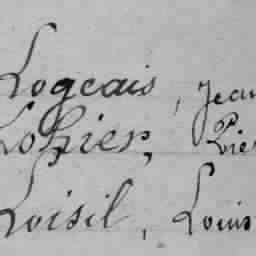 Logeais, Jean
Lohier, Pier
Loisil, Louis